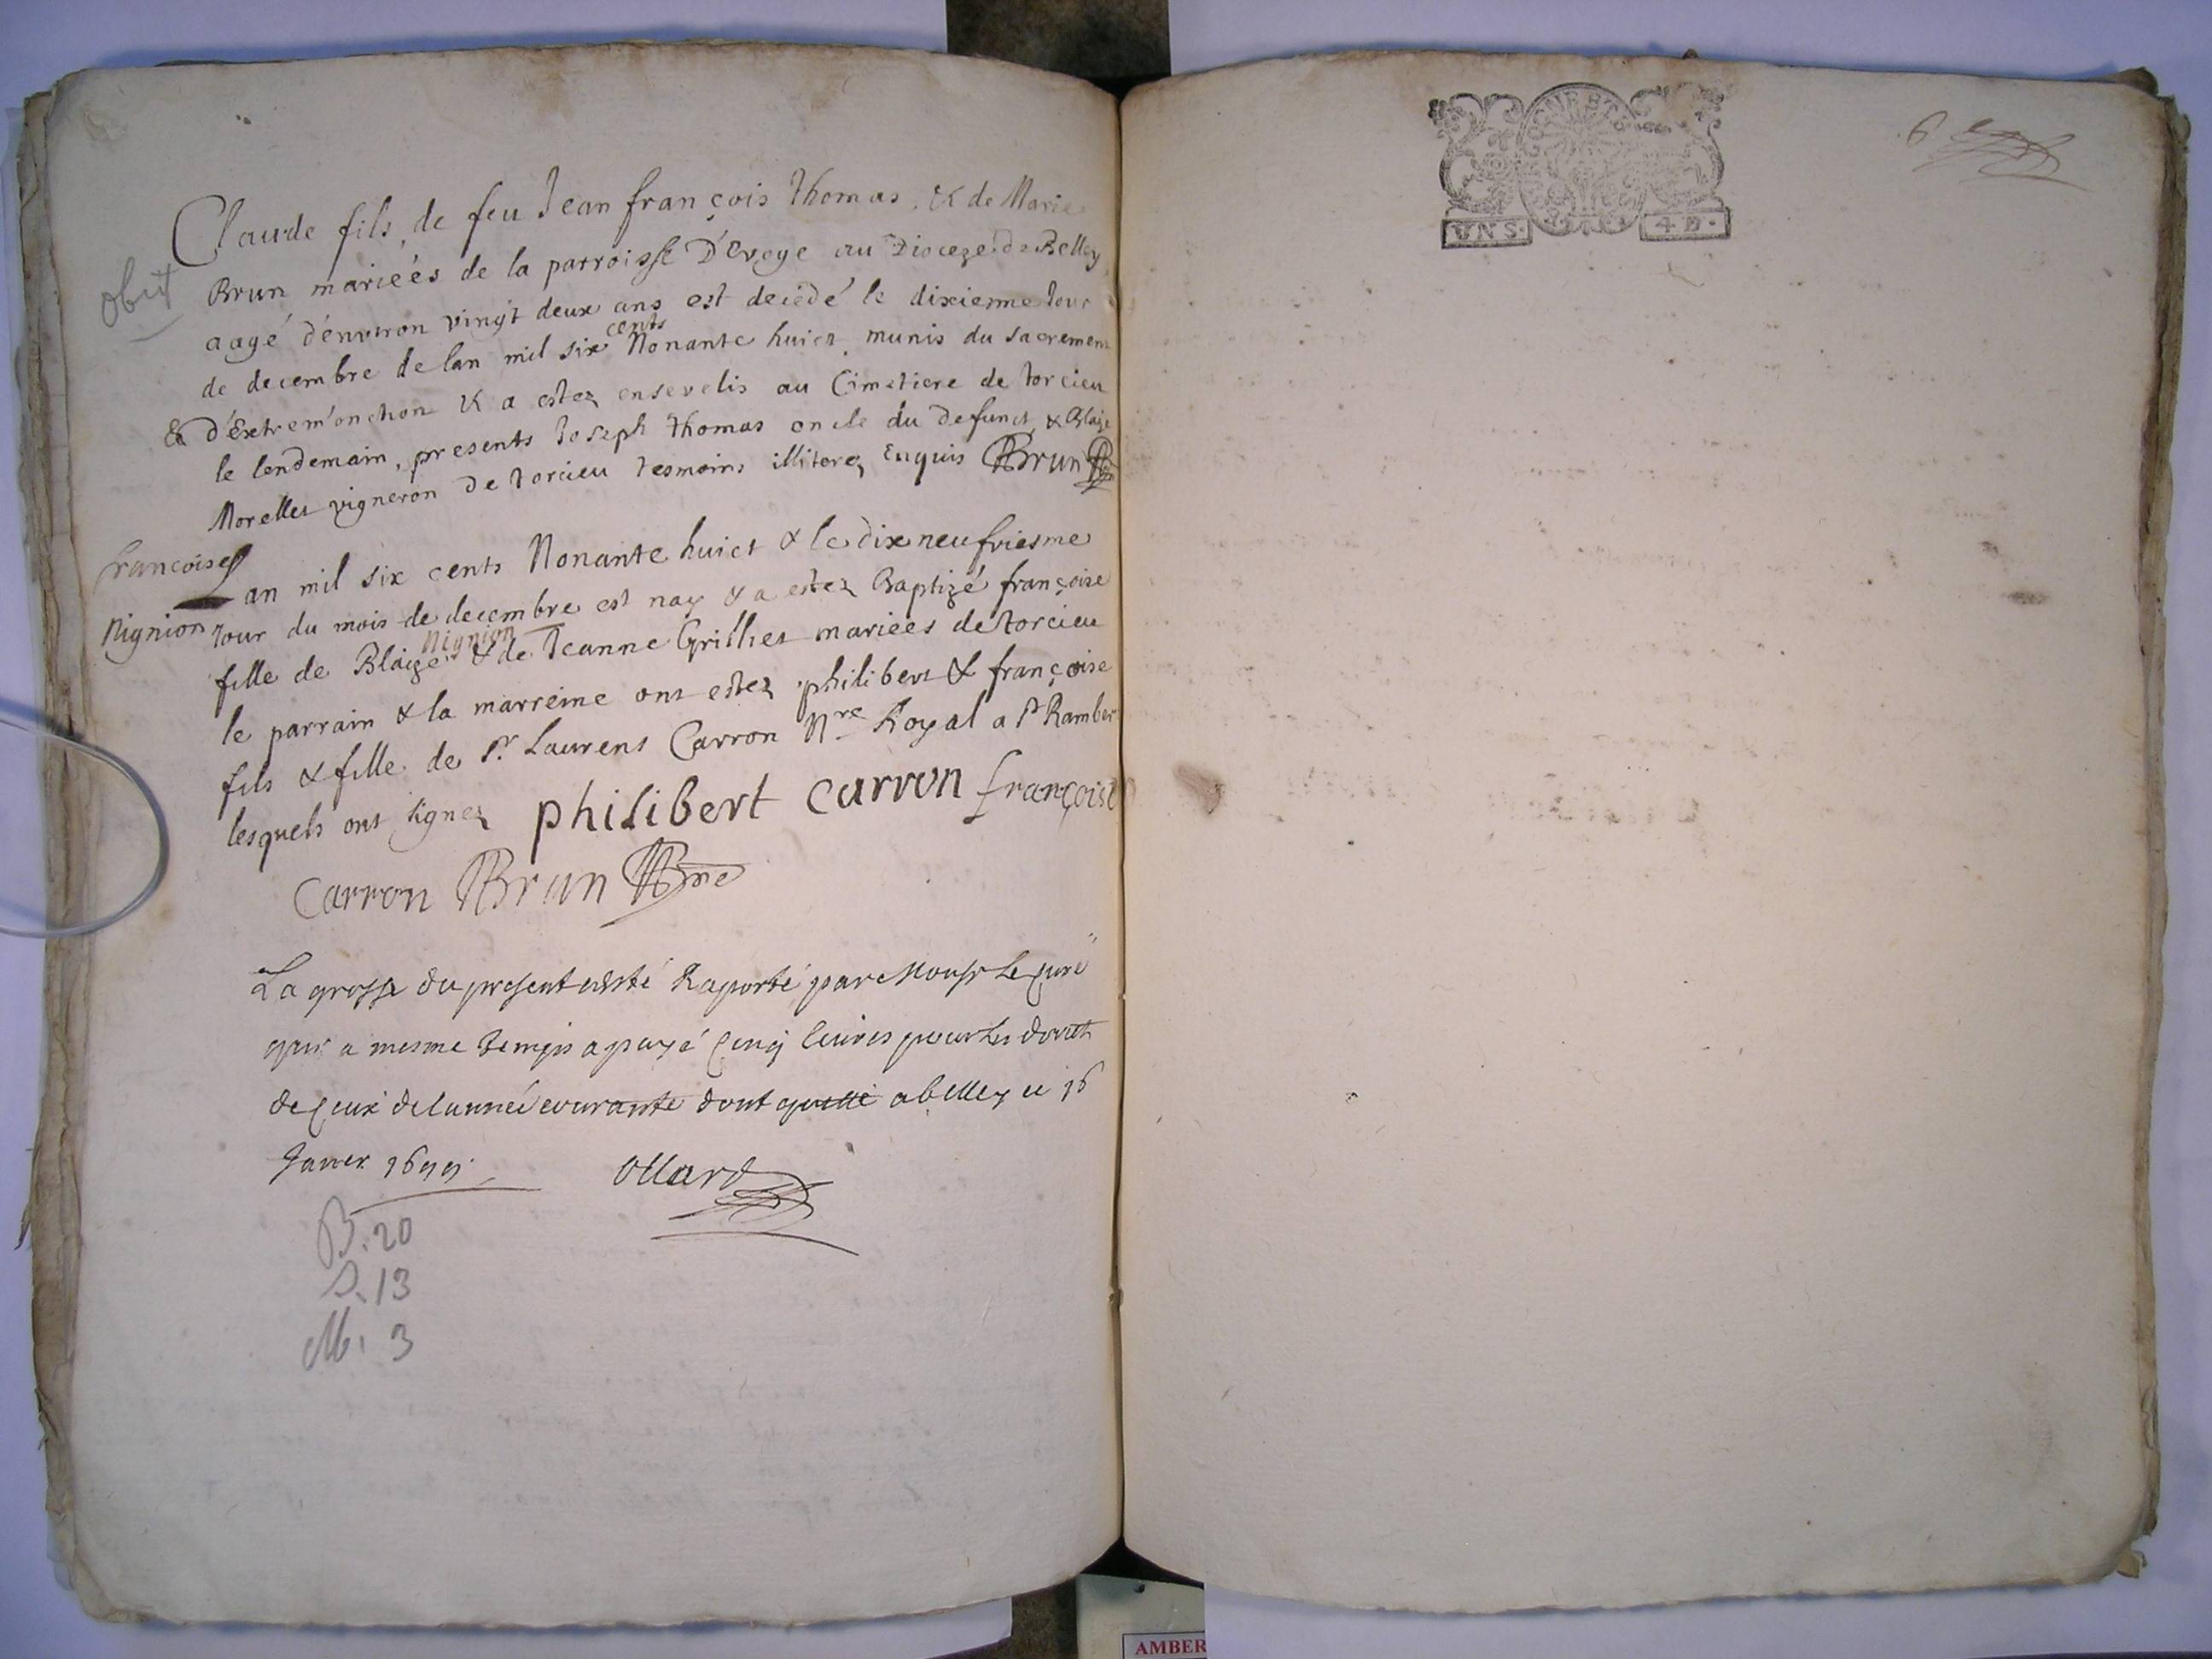 Claude fils, de feu Jean françois Thomas, & de Marie
Brun mariées de la parroisse D'Evoge au Dioceze de Belley
obit
aagé d'environ vingt deux ans est decédé le dixieme Jour
de decembre de lan mil six cents Nonante huict, munis du sacrement
& d'Extrem'onction & a estez ensevelis au Cimetiere de torcieu
le lendemain, presents Joseph Thomas oncle du defunct, & Blaize
Morellet vigneron de torcieu tesmoins illiterez Enquis Brun
francoise
Nignion
Lan mil six cents Nonante huict & le dix neufviesme
Jour du mois de decembre est nay & a estez Baptizé françoise
fille de Blaize Nignion & de Jeanne Grillet mariees de torcieu
le parrain & la marreine ont estez philibert & françoise
fils & fille de Sr. Laurens Carron Nre Royal a St Rambert
lesquels ont signez philibert carron françoise
Carron Brun
La grosse du present a esté Raporté par Monsr le curé
qui a mesme temps a payé cinq livres pour les droits
de ceux de lannée courante dont quitté a belley ce 16
Janvier 1699.
Ollard
B. 20
S. 13
M. 3
6
UN S. 4 D.
AMBER